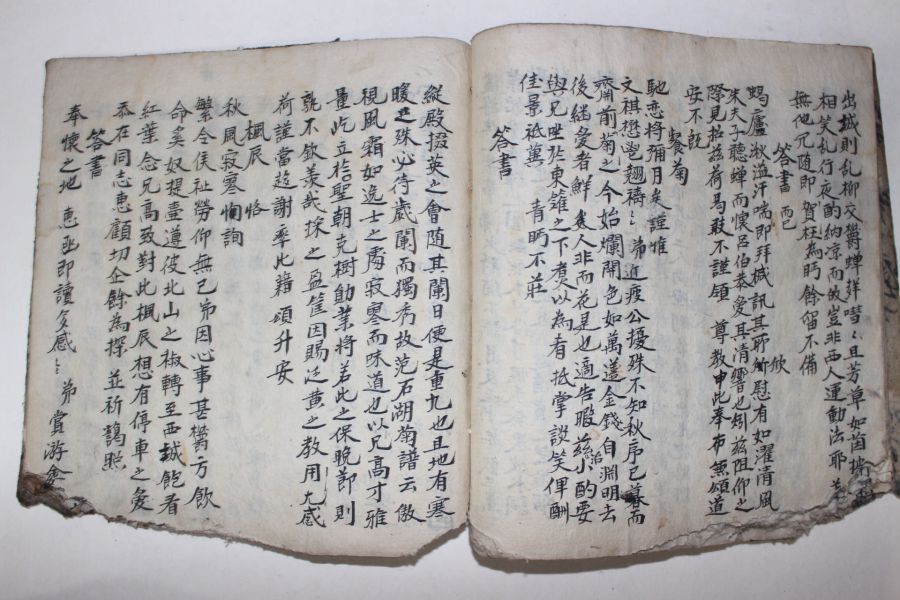 出城則乱柳交欝蟬拜嘒〻且芳草如茵
相笑乱行夜酌納凉而故豈非西人運動法耶
無他冗随即賀枉為眄餘留不備
答書 而已
蝎廬湫溢汗喘即拜椷訊其聆斫慰有如濯清風
朱夫子聽蟬而懷呂伯恭愛其清響也矧玆阻仰之
際見招玆荷曷敢不謹領 尊教申此奉布無頌道
安不旣
餐菊
馳恋将彌月矣謹惟
文祺懋邕翹禱〻弟近疲公擾殊不知秋序已暮而
齋前菊之今始爛開色如萬溢金錢自淵明去
後継爰者鮮矣人非而花是也適告暇玆治小酌要
與兄坐於東籬之下煑以為肴抵掌談笑俾酬
佳景祗萬 青眄不莊
答書
縱殿掇英之會随其闌日便是重九也且地有寒
暖之殊必待歲闌而獨秀故范石湖菊譜云傲
視風霜如逸士之處寂寥而味道也以兄高才雅
量屹立於聖朝克樹勛業将若此之保晩節則
孰不欽羡哉採之盈筐因賜泛黄之教用尤感
荷謹當趍謝率此藉頌升安
楓辰 恪
秋風寂寒恫詢
繁令俟祉勞仰無已弟因心事甚欝方飲
命奚奴提壺遵彼北山之椒轉至西城飽看
紅葉念兄高致對此楓辰想有停車之爰
忝在同志惠顧切企餘為探並祈藹照
答書
奉懷之地 惠函即讀多感〻弟賞游